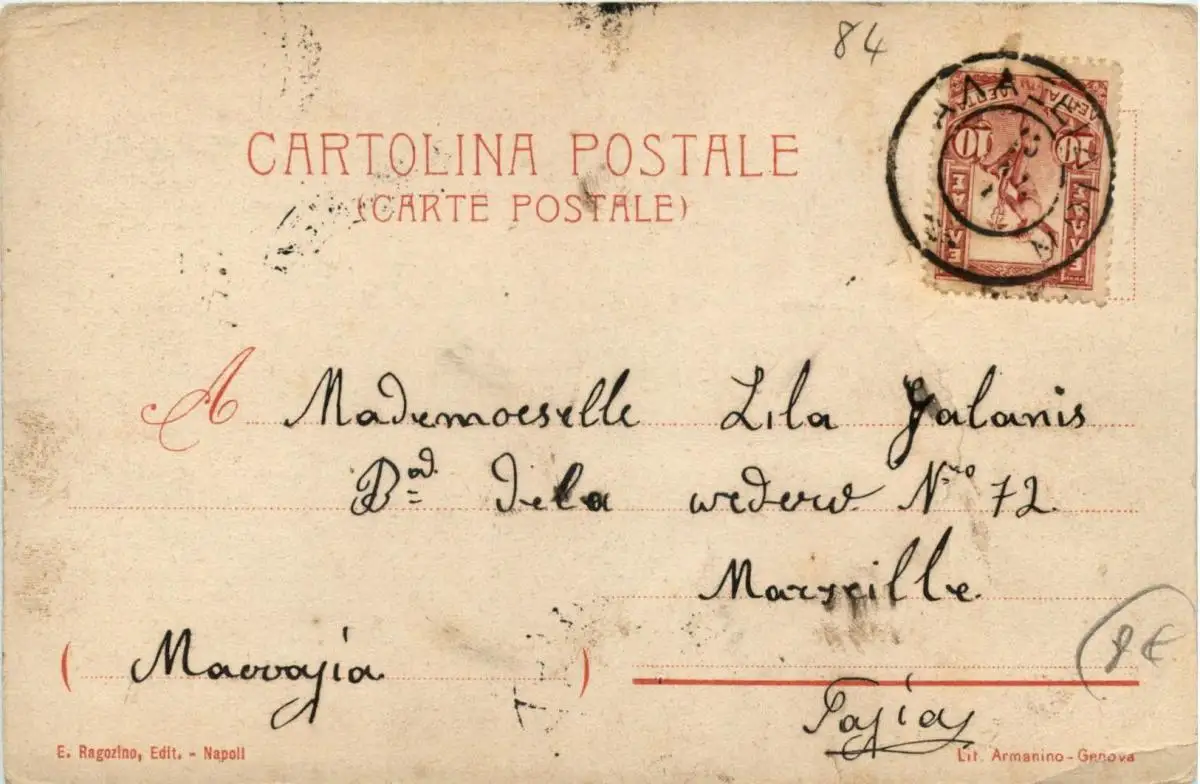 84
CARTOLINA POSTALE
(CARTE POSTALE)
10 10
A Mademoeselle Lila Galanis
Bad. Dela N=ro 72
Marseille.
( Μασσαλία )
8€
Γαλλίας
E. Ragozino, Edit. - Napoli
Lit. Armanino-Genova